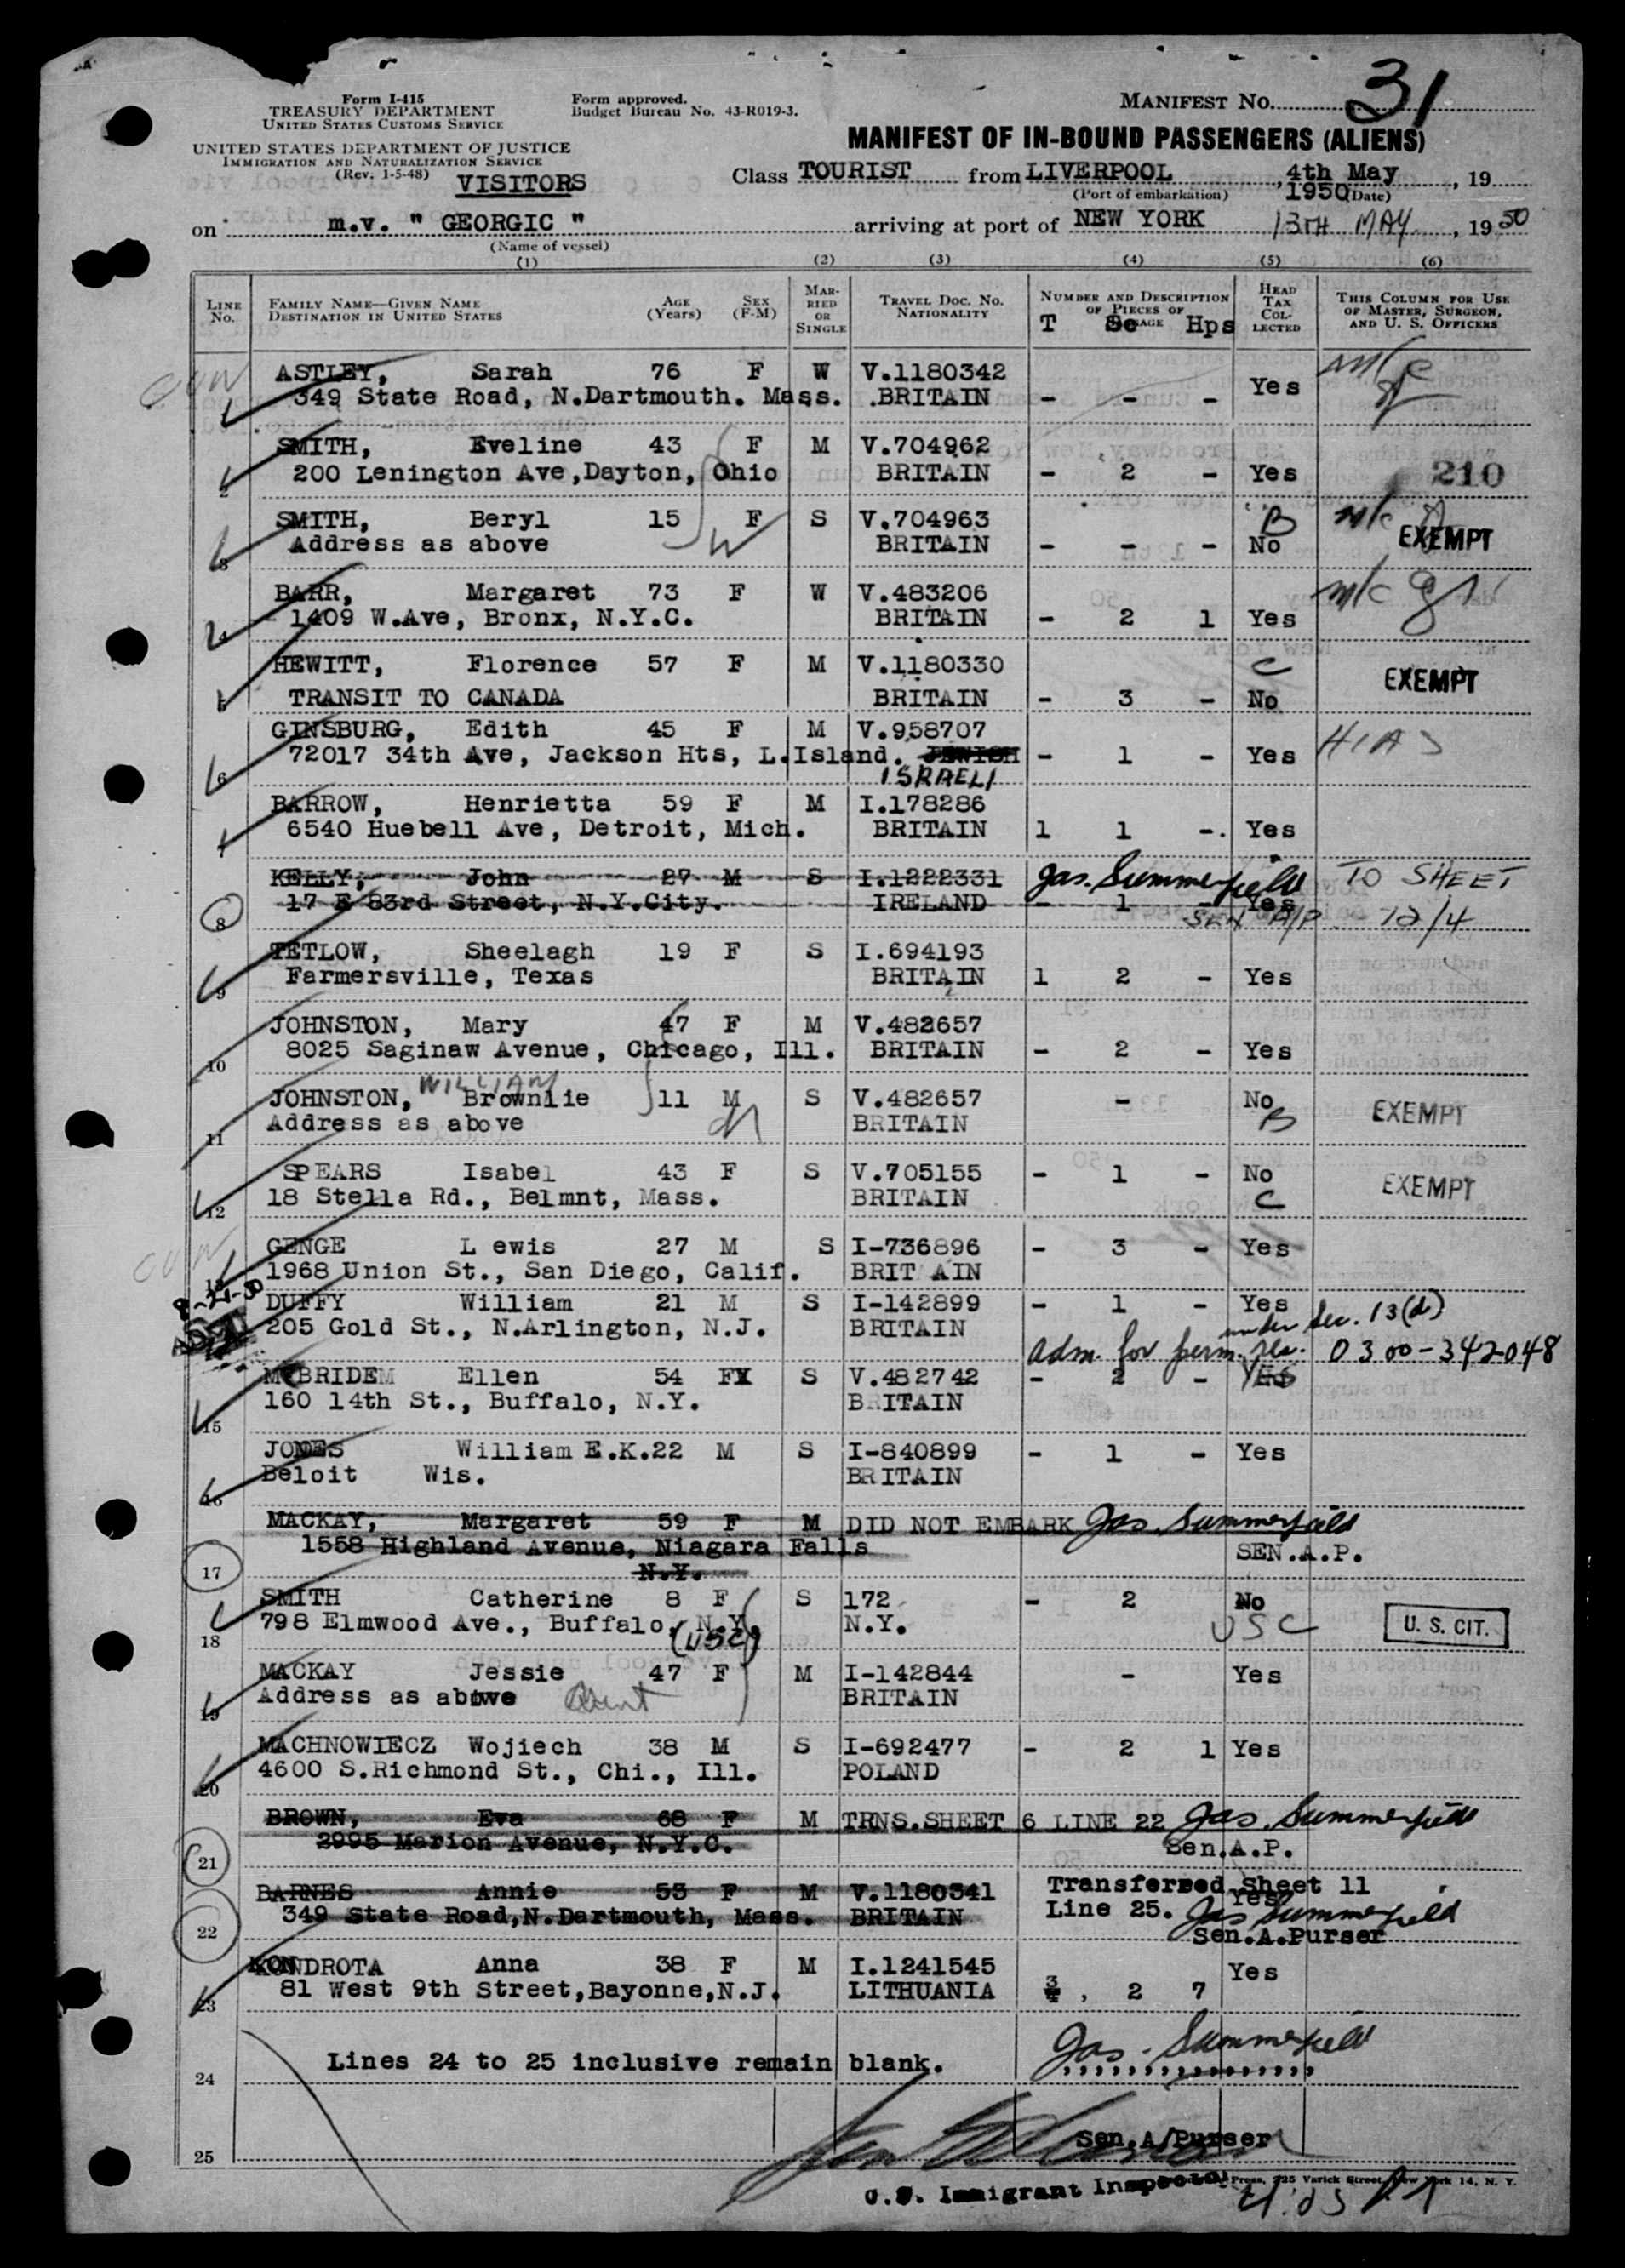 31
Form I-415
TREASURY DEPARTMENT
UNITED STATES CUSTOMS SERVICE
Form approved.
Budget Bureau No. 43-R019-3.
MANIFEST NO.
UNITED STATES DEPARTMENT OF JUSTICE
IMMIGRATION AND NATURALIZATION SERVICE
(Rev. 1-5-48)
MANIFEST OF IN-BOUND PASSENGERS (ALIENS)
VISITORS
Class TOURIST from LIVERPOOL, 4th May, 19
(Port of embarkation) 1950 (Date)
on m.v. " GEORGIC " arriving at port of NEW YORK 13TH MAY, 1950
(Name of vessel)
(1) (2) (3) (4) (5) (6)
LINE NO. FAMILY NAME—GIVEN NAME DESTINATION IN UNITED STATES AGE (Years) SEX (F-M) MARRIED OR SINGLE TRAVEL DOC. NO. NATIONALITY NUMBER AND DESCRIPTION OF PIECES OF T Sc Hps HEAD TAX COLLECTED THIS COLUMN FOR USE OF MASTER, SURGEON, AND U. S. OFFICERS
ASTLEY, Sarah 76 F W V.1180342
349 State Road, N.Dartmouth. Mass. .BRITAIN - - - Yes
SMITH, Eveline 43 F M V.704962
2 200 Lenington Ave,Dayton, Ohio BRITAIN - 2 - Yes 210
SMITH, Beryl 15 F S V.704963 B m/c
3 Address as above W BRITAIN - - - No EXEMPT
BARR, Margaret 73 F W V.483206 m/c
4 1409 W.Ave, Bronx, N.Y.C. BRITAIN - 2 1 Yes
HEWITT, Florence 57 F M V.1180330 C
5 TRANSIT TO CANADA BRITAIN - 3 - No EXEMPT
GINSBURG, Edith 45 F M V.958707
6 72017 34th Ave, Jackson Hts, L.Island. JEWISH - 1 - Yes HIAS
ISRAELI
BARROW, Henrietta 59 F M I.178286
7 6540 Huebell Ave, Detroit, Mich. BRITAIN 1 1 -. Yes
KELLY, John 27 M S I.1222331 Jas. Summerfield TO SHEET
8 17 E 83rd Street, N.Y.City. IRELAND - 1 - Yes
SEN A/P. 12/4
TETLOW, Sheelagh 19 F S I.694193
9 Farmersville, Texas BRITAIN 1 2 - Yes
JOHNSTON, Mary 47 F M V.482657
10 8025 Saginaw Avenue, Chicago, Ill. BRITAIN - 2 - Yes
WILLIAM
JOHNSTON, Brownlie 11 M S V.482657 - No
11 Address as above M BRITAIN B EXEMPT
SPEARS Isabel 43 F S V.705155 - 1 - No
12 18 Stella Rd., Belmnt, Mass. BRITAIN C EXEMPT
GENGE L ewis 27 M S I-736896 - 3 - Yes
13 1968 Union St., San Diego, Calif. BRIT AIN
DUFFY William 21 M S I-142899 - 1 - Yes
205 Gold St., N.Arlington, N.J. BRITAIN under Sec. 13(d)
adm. for perm. res. 0300-342048
McBRIDEM Ellen 54 FX S V.482742 - 2 - YES
15 160 14th St., Buffalo, N.Y. BRITAIN
JONES William E.K.22 M S I-840899 - 1 - Yes
16 Beloit Wis. BRITAIN
MACKAY, Margaret 59 F M DID NOT EMBARK Jas. Summerfield
17 1558 Highland Avenue, Niagara Falls SEN.A.P.
N.Y.
SMITH Catherine 8 F S 172 - 2 No
18 798 Elmwood Ave., Buffalo, N.Y. N.Y. USC U. S. CIT.
(USC)
MACKAY Jessie 47 F M I-142844 - Yes
19 Address as above Aunt BRITAIN
MACHNOWIECZ Wojiech 38 M S I-692477 - 2 1 Yes
20 4600 S.Richmond St., Chi., Ill. POLAND
BROWN, Eva 68 F M TRNS.SHEET 6 LINE 22 Jas. Summerfield
21 2995 Marion Avenue, N.Y.C. Sen.A.P.
BARNES Annie 53 F M V.1180341 Transferred Sheet 11
22 349 State Road,N.Dartmouth, Mass. BRITAIN Line 25. Yes Jas Summerfield
Sen.A.Purser
KONDROTA Anna 38 F M I.1241545 Yes
23 81 West 9th Street,Bayonne,N.J. LITHUANIA 3/4, 2 7
Lines 24 to 25 inclusive remain blank. Jas. Summerfield
24
Sen.A/Purser
25
U.S. Immigrant Inspector
Press, 225 Varick Street, New York 14, N. Y.